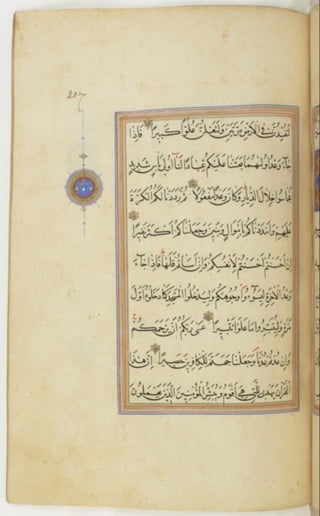 لَتُفْسِدُنَّ فِي الْأَرْضِ مَرَّتَيْنِ وَلَتَعْلُنَّ عُلُوًّا كَبِيرًا فَإِذَا
جَاءَ وَعْدُ أُولَاهُمَا بَعَثْنَا عَلَيْكُمْ عِبَادًا لَنَا أُولِي بَأْسٍ شَدِيدٍ
فَجَاسُوا خِلَالَ الدِّيَارِ وَكَانَ وَعْدًا مَفْعُولًا ثُمَّ رَدَدْنَا لَكُمُ الْكَرَّةَ
عَلَيْهِمْ وَأَمْدَدْنَاكُمْ بِأَمْوَالٍ وَبَنِينَ وَجَعَلْنَاكُمْ أَكْثَرَ نَفِيرًا
إِنْ أَحْسَنْتُمْ أَحْسَنْتُمْ لِأَنْفُسِكُمْ وَإِنْ أَسَأْتُمْ فَلَهَا فَإِذَا جَاءَ
وَعْدُ الْآخِرَةِ لِيَسُوءُوا وُجُوهَكُمْ وَلِيَدْخُلُوا الْمَسْجِدَ كَمَا دَخَلُوهُ أَوَّلَ
مَرَّةٍ وَلِيُتَبِّرُوا مَا عَلَوْا تَتْبِيرًا عَسَى رَبُّكُمْ أَنْ يَرْحَمَكُمْ
وَإِنْ عُدْتُمْ عُدْنَا وَجَعَلْنَا جَهَنَّمَ لِلْكَافِرِينَ حَصِيرًا إِنَّ هَذَا
الْقُرْآنَ يَهْدِي لِلَّتِي هِيَ أَقْوَمُ وَيُبَشِّرُ الْمُؤْمِنِينَ الَّذِينَ يَعْمَلُونَ